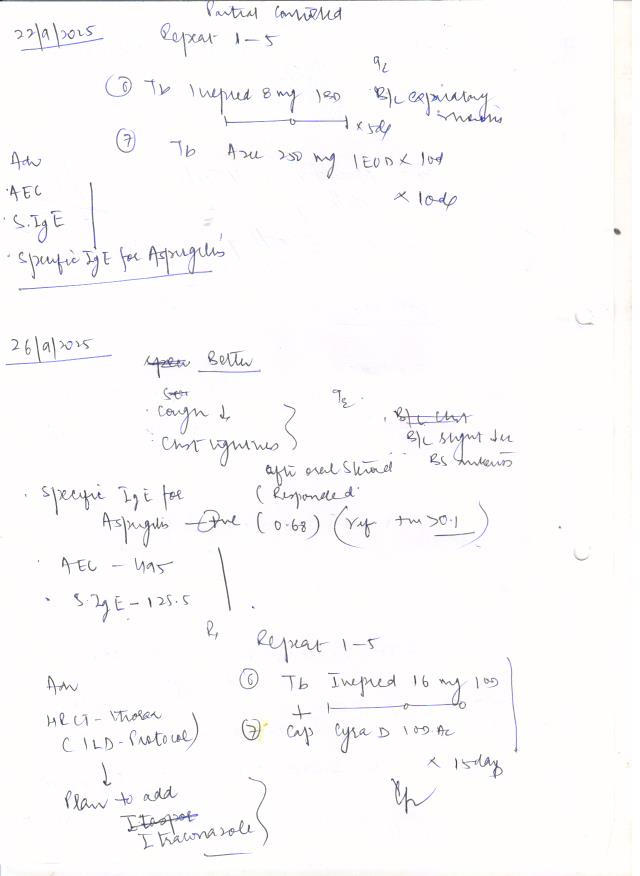 Partial Controlled
22/9/2025
Repeat 1-5
⑥ Tb Inepred 8mg 1BD
B/L expiratory
rhonchi
x 5d
⑦ Tb Azee 250 mg 1EOD x 10d
x 10d
Adv
· AEC
· S.IgE
· Specific IgE for Aspergillus
26/9/2025
Better
· Cough ↓
· Chest tightness
B/L chest
B/L slight
BS
after oral steroid
(Responded
· Specific IgE for
Aspergillus +ve (0.68) (ref +ve >0.1)
· AEC - 495
· S.IgE - 125.5
Rx Repeat 1-5
Adv
⑥ Tb Inepred 16 mg 1OD
+
HRCT - Thorax
(ILD-Protocol)
⑦ Cap Cyra D 1OD AC
x 15days
↓
Plan to add
Itraconazole